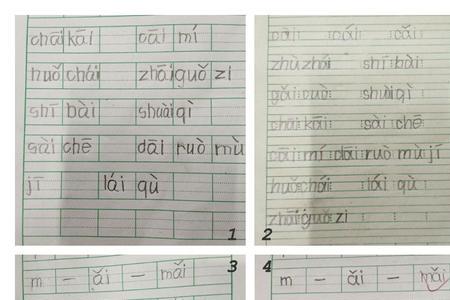 chāi kāi cāi mí
huǒ chái zhāi guǒ zi
shī bài shuài qì
sài chē dāi ruò mù
jī lái qù
1
cāi cái cǎi
zhù zhái shī bài
gǎi cuò shuài qì
chāi kāi sài chē
cāi mí dāi ruò mù jī
huǒ chái lái qù
zhāi guǒ zi
2
m — ǎi — mǎi
3
m — ǎi — mǎi
4